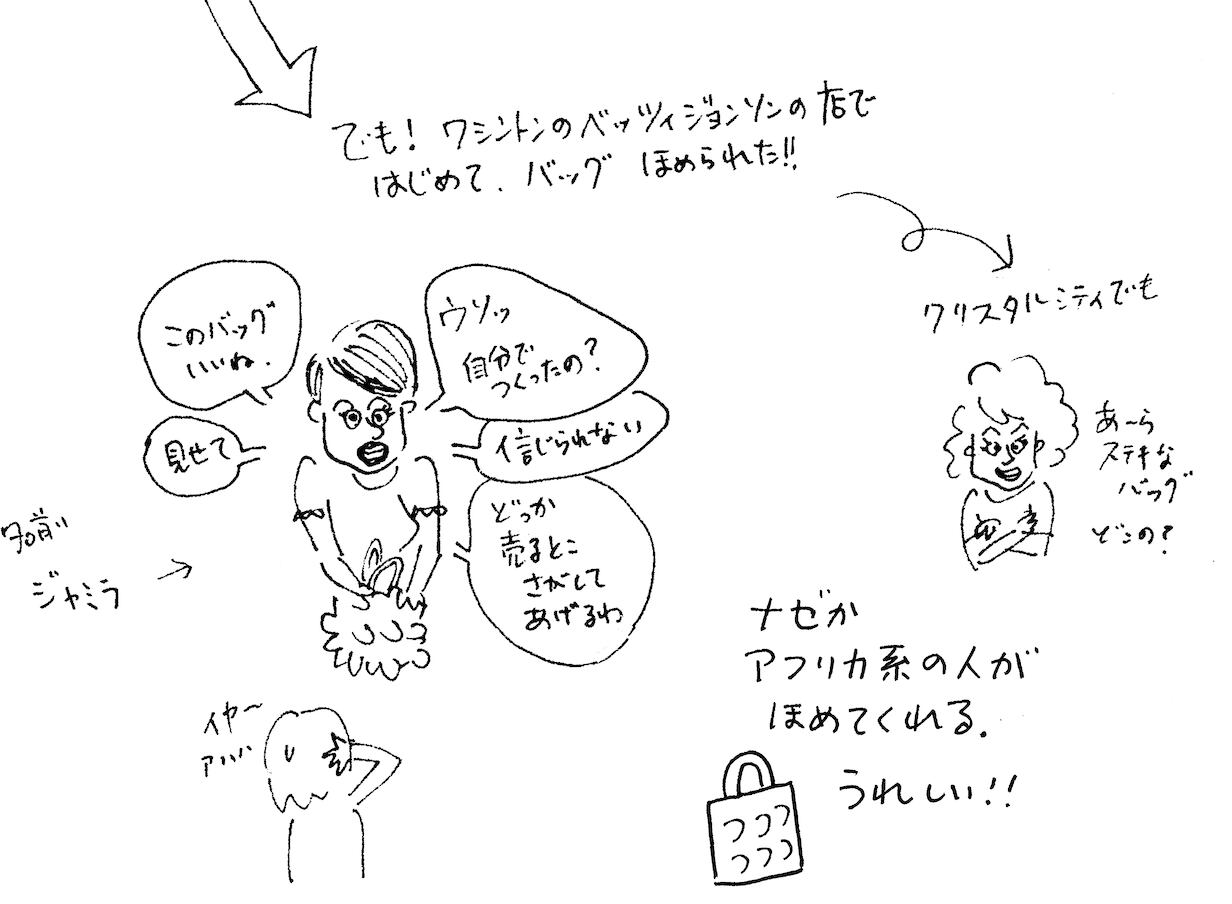 でも! ワシントンのベッツィジョンソンの店で
はじめて、バッグ ほめられた!!
クリスタルシティでも
このバッグ
いいね.
見せて
ウソッ
自分で
つくったの?
信じられない
どっか
売るとこ
さがして
あげるわ
名前
ジャミラ
あ〜ら
ステキな
バッグ
どこの?
イヤー
アハハ
ナゼか
アフリカ系の人が
ほめてくれる.
うれしい!!